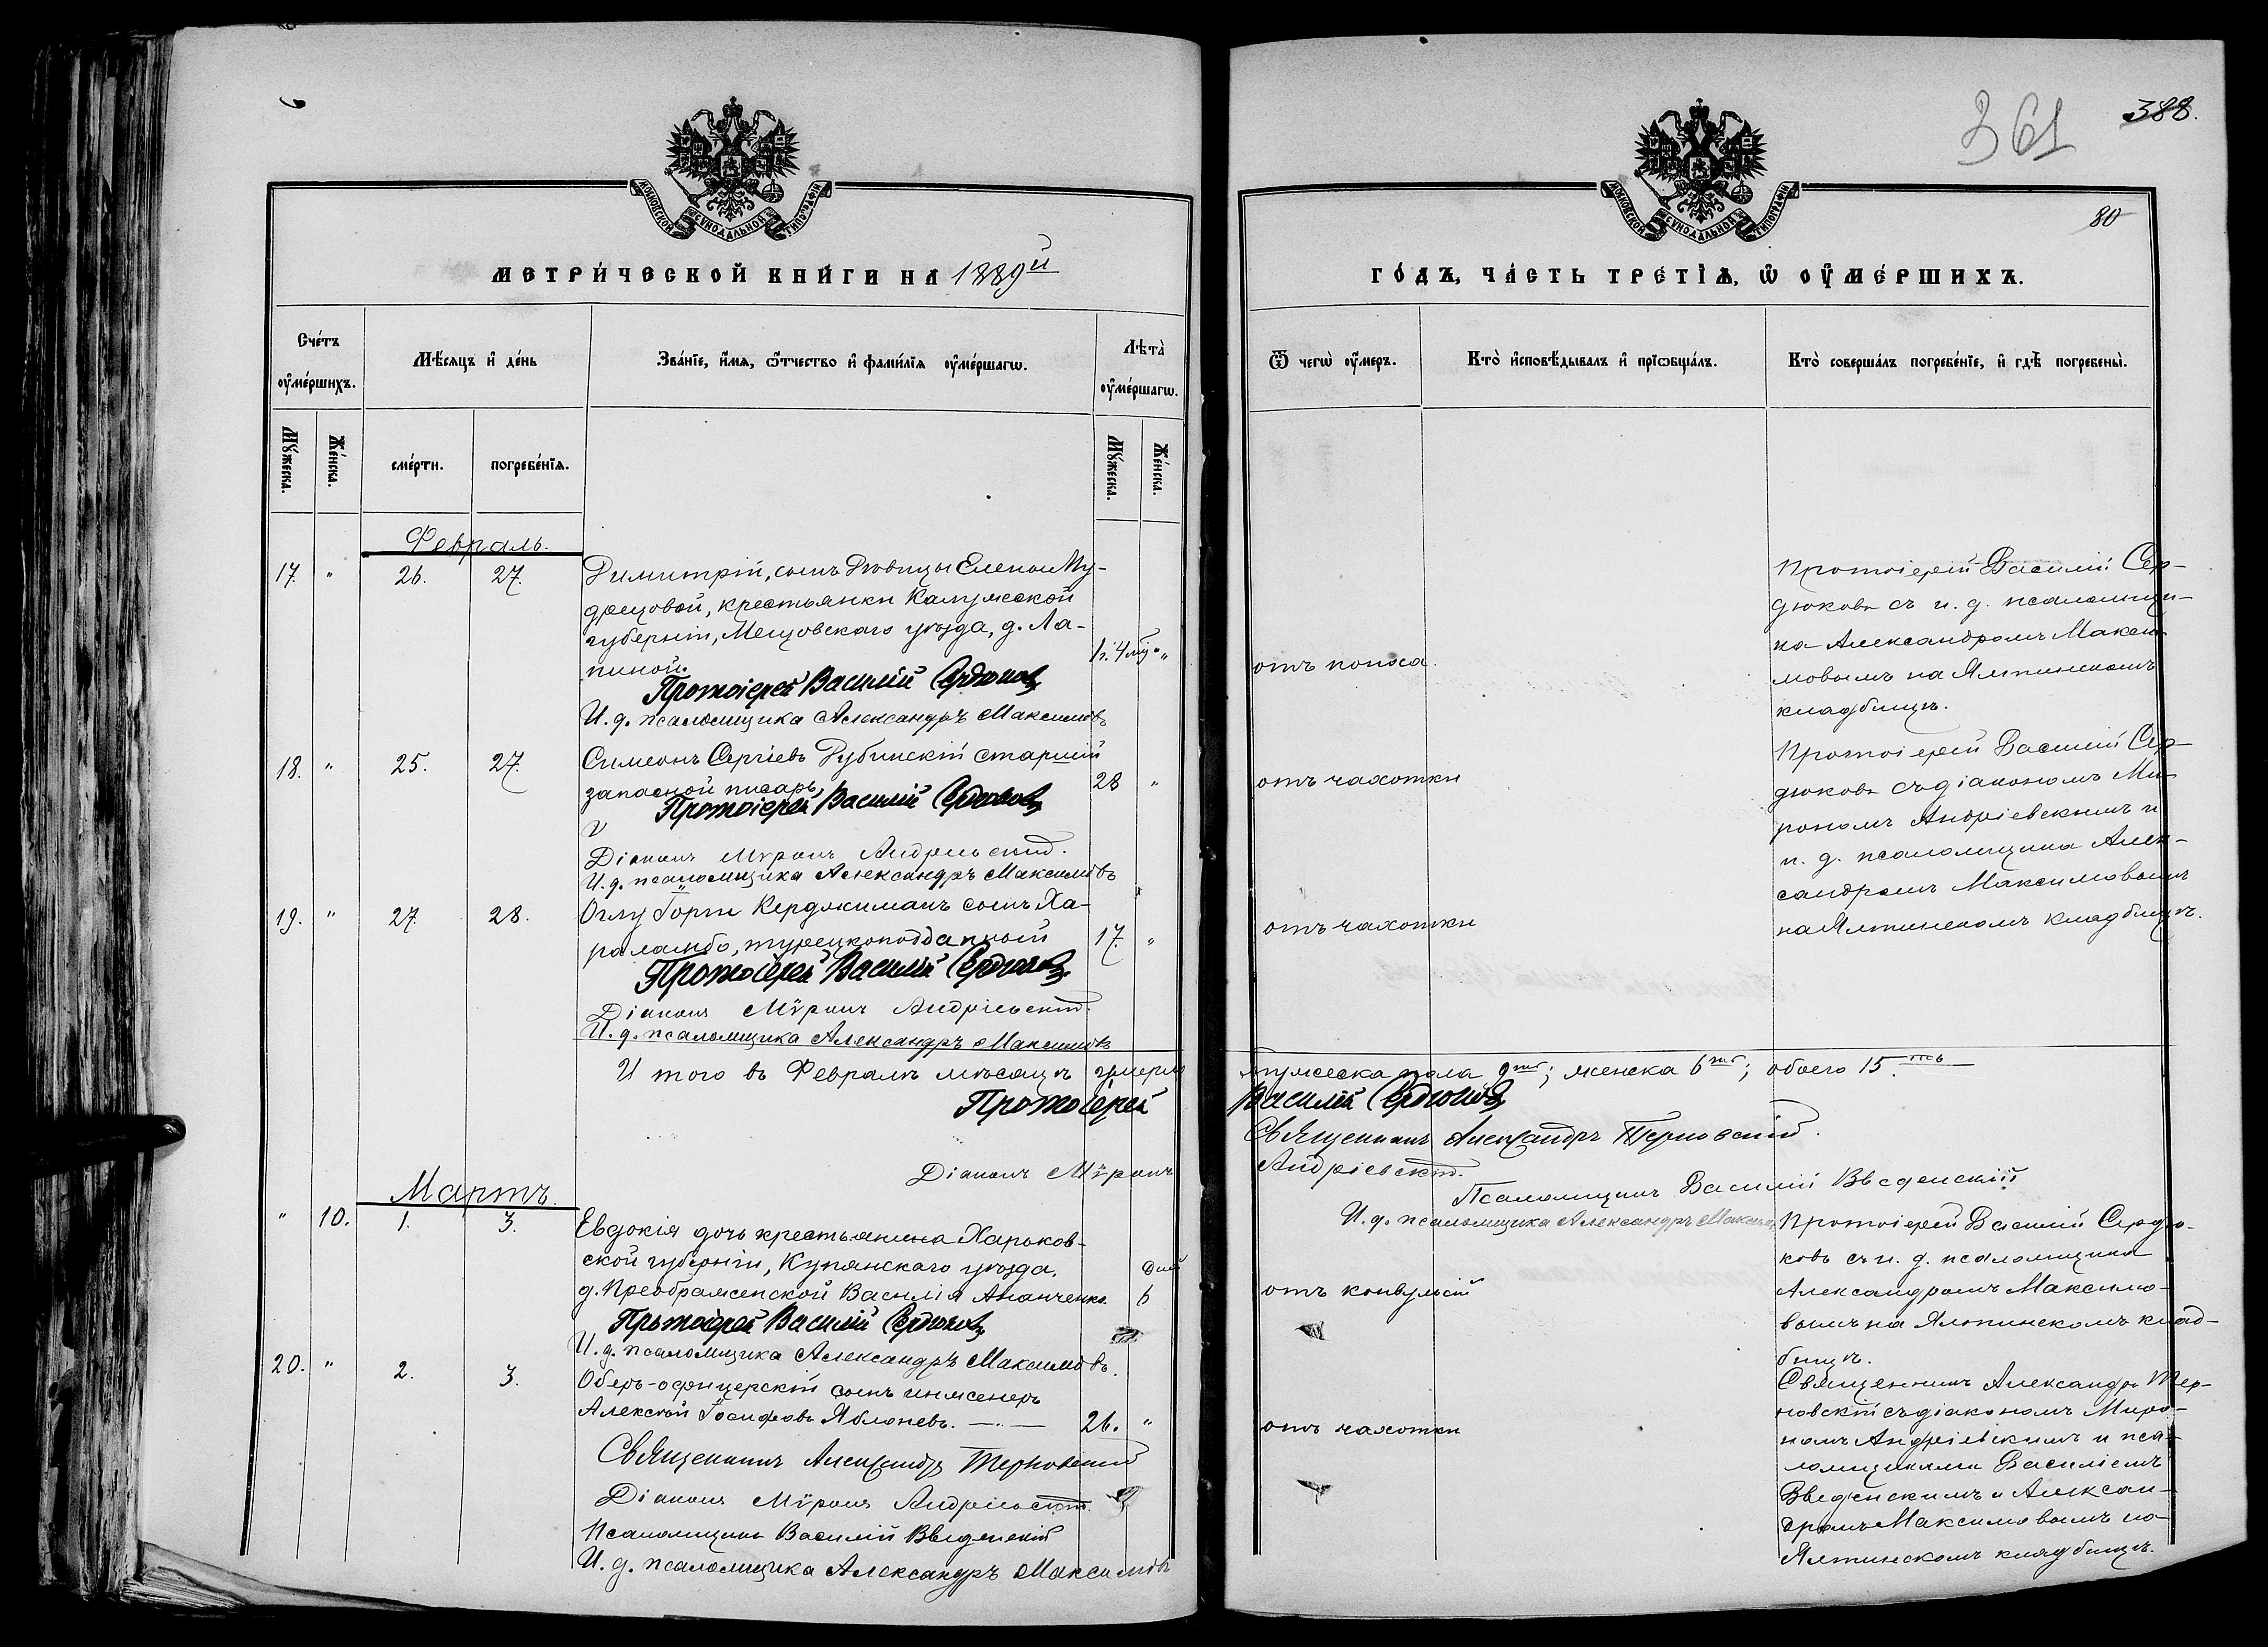 МОСКОВСКОЙ СѴНОДАЛЬНОЙ ТИПОГРАФІИ
МЕТРИ́ЧЕСКОЙ КНИ́ГИ НА 1889й
Сче́тъ оу҆ме́ршихъ.
Мѣ́сяцъ и҆ де́нь
Зва́нїе, и҆́мя, ѻ҆́тчество и҆ фами́лїя оу҆ме́ршагѡ.
Лѣта̀ оу҆ме́ршагѡ.
Мꙋ́жеска.
Же́нска.
сме́рти.
погребе́нїѧ.
Мꙋ́жеска.
Же́нска.
Февраль.
17. " 26. 27.
Димитрій, сынъ Дѣвицы Елены Му-
дрецовой, крестьянки Калужской
губерніи, Мещовскаго уѣзда, д. Ла-
пиной.
1г. 4 "
Протоіерей Василій Сердюковъ
И. д. псаломщика Александръ Максимовъ
18. " 25. 27.
Симеонъ Сергіевъ Рубинскій старшій
запасной писарь,
28 "
Протоіерей Василій Сердюковъ
Діаконъ Мѵронъ Андріевскій.
И. д. псаломщика Александръ Максимовъ
19. " 27. 28.
Оглу Горги Керджиманъ сынъ Ха-
раламбо, турецкоподданный
17. "
Протоіерей Василій Сердюковъ
Діаконъ Мѵронъ Андріевскій.
И. д. псаломщика Александръ Максимовъ
И того въ Февралѣ мѣсяцѣ умерло
Протоіерей
Діаконъ Мѵронъ
Мартъ.
" 10. 1. 3.
Евдокія дочь крестьянина Харьков-
ской губерніи, Купянскаго уѣзда,
д. Преображенской Василія Ананченко.
дней
6
Протоіерей Василій Сердюковъ
И. д. псаломщика Александръ Максимовъ.
20. " 2. 3.
Оберъ-офицерскій сынъ инженеръ
Алексѣй Іосифовъ Яблоневъ.
26. "
Священникъ Александръ Терновскій
Діаконъ Мѵронъ Андріевскій.
Псаломщикъ Василій Введенскій
И. д. псаломщика Александръ Максимовъ
361
388.
80
МОСКОВСКОЙ СѴНОДАЛЬНОЙ ТИПОГРАФІИ
ГО́ДЪ, ЧА́СТЬ ТРЕ́ТЇѦ, Ѡ҆ ОУ҆МЕ́РШИХЪ.
Ѿ чегѡ̀ оу҆́меръ.
Кто̀ и҆сповѣ́дывалъ и҆ прїѡбща́лъ.
Кто̀ соверша́лъ погребе́нїе, и҆ гдѣ̀ погребены̀.
отъ поноса.
Протоіерей Василій Сер-
дюковъ съ и. д. псаломщи-
ка Александромъ Макси-
мовымъ на Ялтинскомъ
кладбищѣ.
отъ чахотки
Протоіерей Василій Сер-
дюковъ съ діакономъ Ми-
рономъ Андріевскимъ и
и. д. псаломщика Алек-
сандромъ Максимовымъ
на Ялтинскомъ кладбищѣ.
отъ чахотки
мужеска пола 9ть; женска 6ть; обоего 15.ть
Василій Сердюковъ
Священникъ Александръ Терновскій.
Андріевскій.
Псаломщикъ Василій Введенскій
И. д. псаломщика Александръ Максимовъ
отъ конвульсій
Протоіерей Василій Сердю-
ковъ съ и. д. псаломщика
Александромъ Максимо-
вымъ на Ялтинскомъ клад-
бищѣ.
отъ чахотки
Священникъ Александръ Тер-
новскій съ діакономъ Миро-
номъ Андріевскимъ и пса-
ломщиками Василіемъ
Введенскимъ и Алексан-
дромъ Максимовымъ на
Ялтинскомъ кладбищѣ.